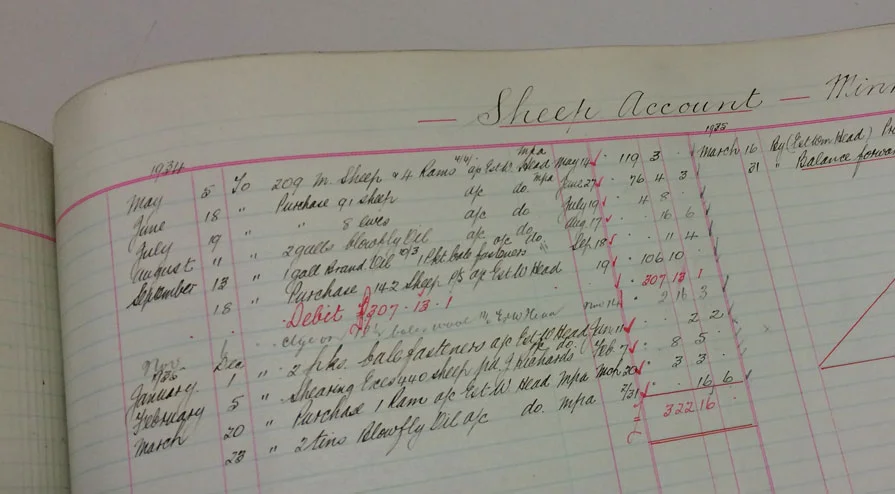 — Sheep Account — Minn
1934 1935
May 5 To 209 m. Sheep & 4 Rams a/c Est W. Head mpa May 14 119 3 March 16 By (Est Wm Head)
June 18 " Purchase 91 sheep a/c do. mpa June 27 76 4 3 31 " Balance forwar
July 19 " " 8 ewes a/c do July 19 4 8
August 11 " 2 galls blowfly Oil a/c do. Aug 17 16 6
September 13 " 1 gall Brand. Oil 10/3 1 Pkt bale fasteners a/c do. Sep 18 11 4
18 " Purchase 142 sheep P/S a/c Est W Head 19 106 10
Debit £307 . 13 . 1 307 13 1
Nov 2 16 3
1935
January Dec 1 " 2 pks. balefasteners a/c Est W Head Jan 11 2 2
February 5 " Shearing Exes 440 sheep pd J Richards Feb 7 8 5
March 20 " Purchase 1 Ram a/c Est W Head mpa Mch 20 3 3
23 " 2 tins Blowfly Oil a/c do. mpa 31 16 6
322 16